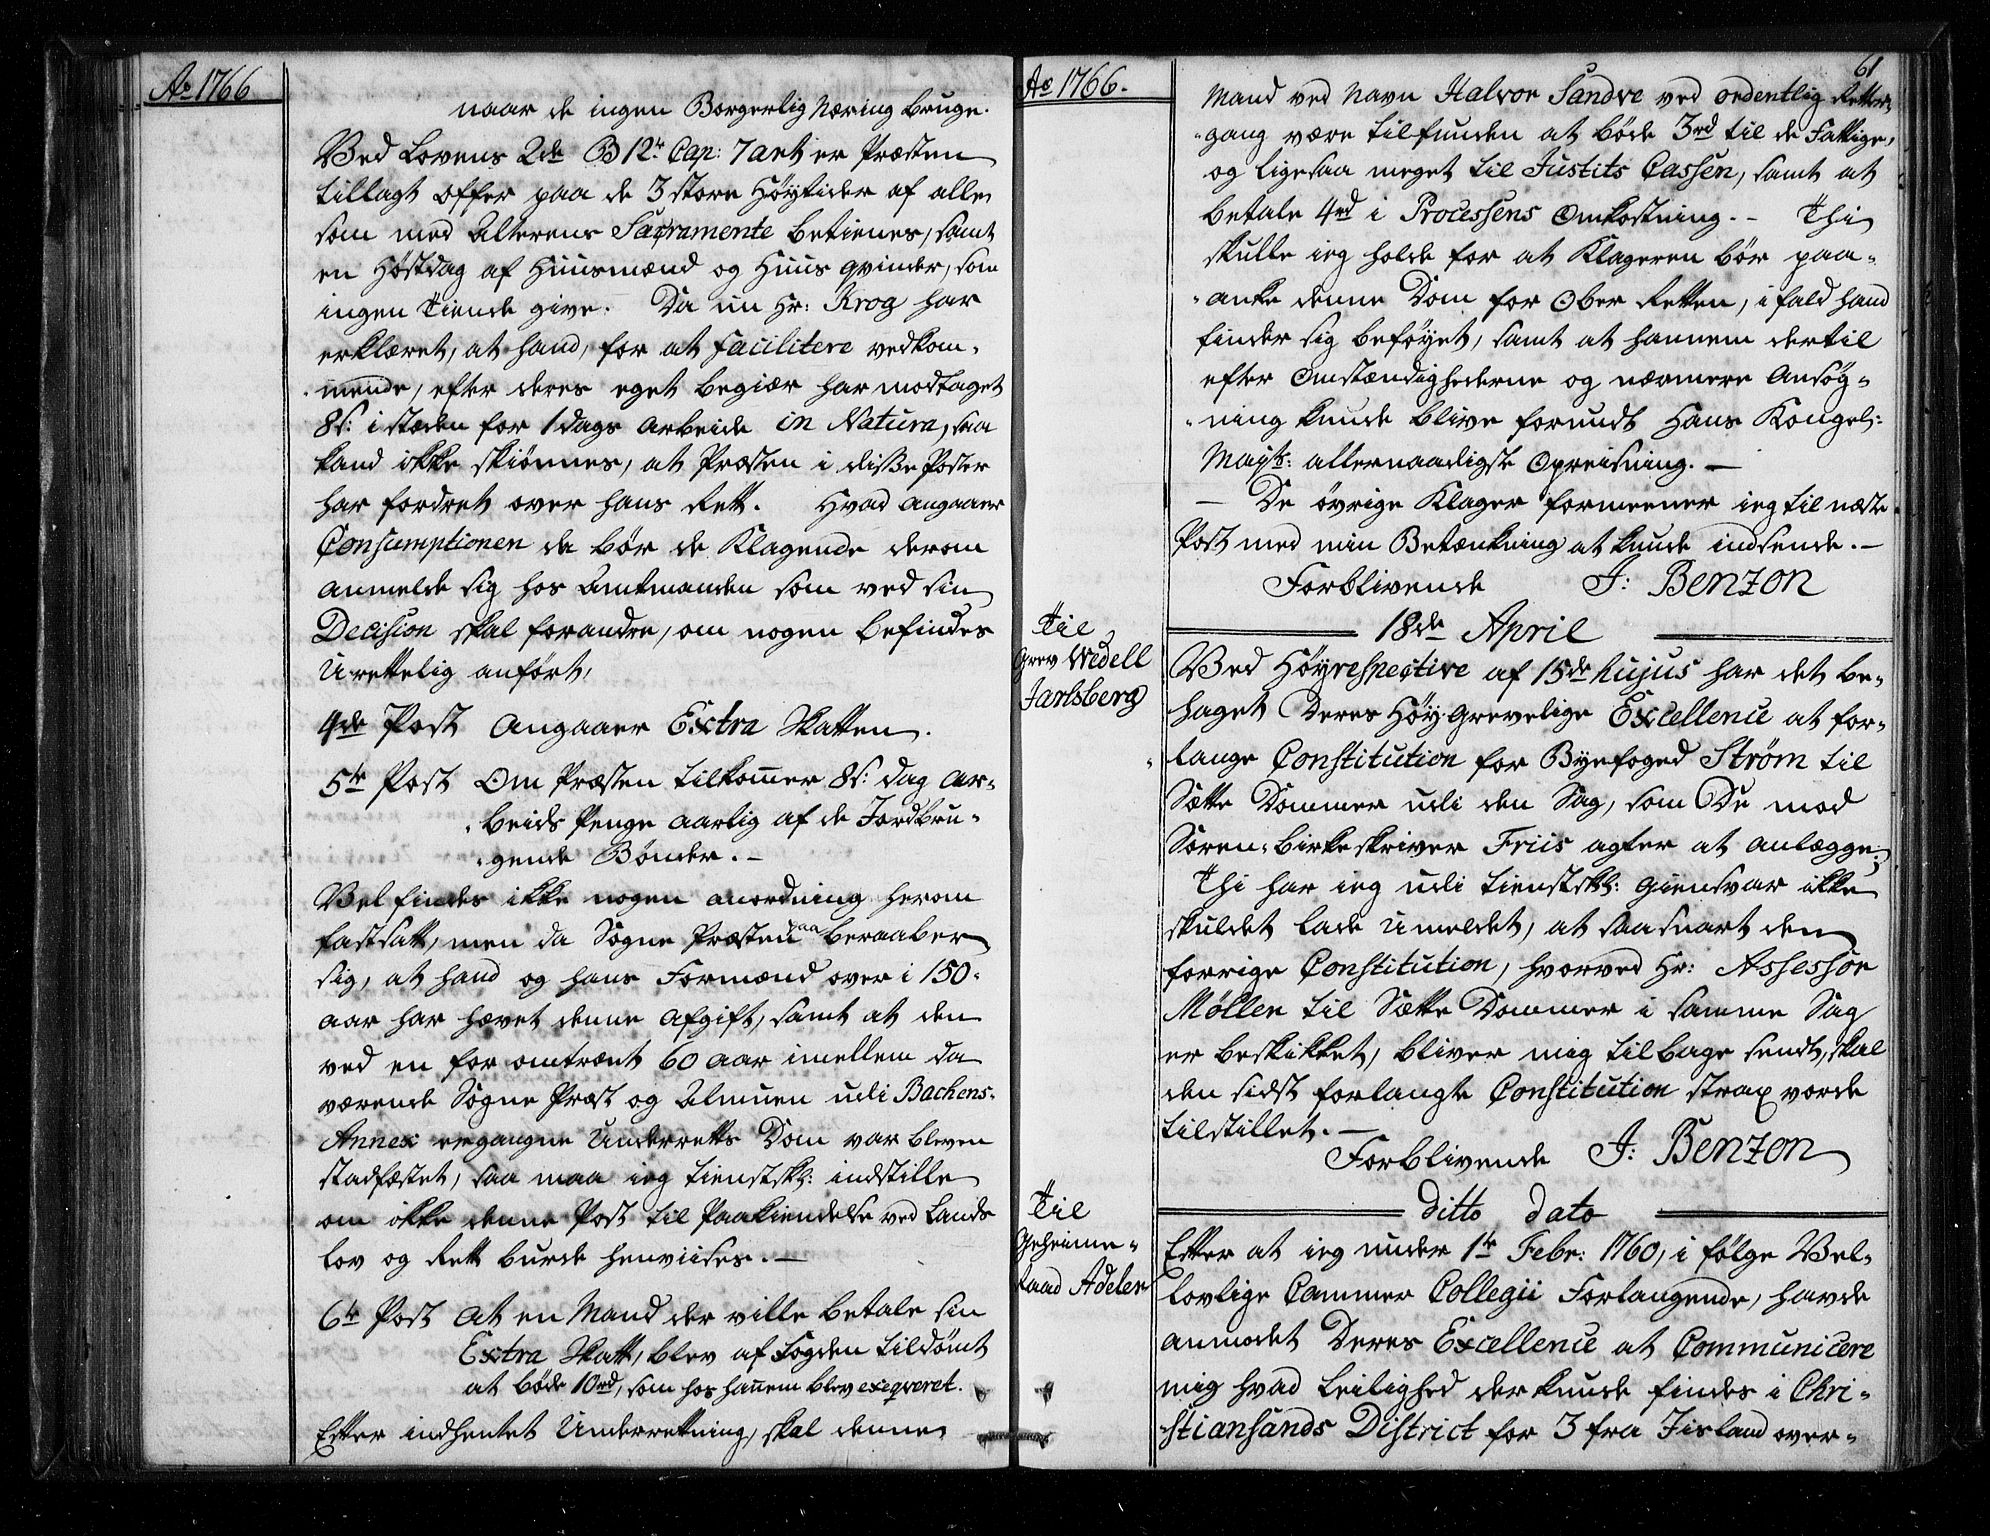 Ao 1766
naar de ingen Borgerlig Næring bruge.
Ved Lovens 2de B 12te Cap: 7 art er Præsten
tillagt Offer paa de 3 store Høytider af alle
som med Alterens Sacramente betienes, samt
en Høstdag af Huusmænd og Huus qvinder, som
ingen Tiende give. Da nu Hr: Krog har
erklæret, at hand, for at facilitere vedkom-
mende, efter deres eget begiær har modtaget
8s: i stæden for 1 dags arbeide in Natura, saa
kand ikke skiønnes, at Præsten i disse Poster
har fordret over hans Rett. Hvad angaaer
Consumptionen da bør de Klagende derom
anmelde sig hos Amtmanden som ved sin
Decision skal forandre, om nogen befindes
Urettelig anført,
4de Post Angaaer Extra Skatten.
5te Post Om Præsten tilkommer 8s: dag ar-
beids Penge aarlig af de Jordbru-
gende Bønder.-
Vel findes ikke nogen anordning herom
fastsatt, men da Sogne Præsten paa beraaber
sig, at hand og hans Formænd over i 150
aar har hævet denne afgift, samt at den
ved en for omtrent 60 aar imellem da
værende Sogne Præst og Almuen udi Bachens-
Annex ergangne Underretts Dom var bleven
stadfæstet, saa maa ieg tienstskl: indstille
om ikke denne Post til Paakiendelse ved Lands
Lov og Rett burde henviises.-
6te Post At en Mand der ville betale sin
Extra Skatt, blev af Fogden tildømt
at bøde 10rd, som hos hannem blev exeqveret.
Efter indhentet Underretning, skal denne
Ao 1766.
61
Mand ved Navn Halvor Sandve ved ordentlig Retter-
gang være tilfunden at bøde 3rd til de Fattige,
og ligesaa meget til Justits Cassen, samt at
betale 4rd i Processens Omkostning.- Thi
skulle ieg holde for at Klageren bør paa-
anke denne Dom for Ober Retten, i fald hand
finder sig beføyet, samt at hannem dertil
efter Omstændighederne og nærmere Ansøg-
ning kunde blive forundt Hans Kongel:
Mayts: allernaadigste Opreisning.-
- De øvrige Klager formeener ieg til næste
Post med min Betænkning at kunde indsende.-
Forblivende J: Benzon
18de April
Til
Grev Wedell
Jarlsberg
Ved Høyrespective af 15de hujus har det be-
haget Deres Høy-Grevelige Excellence at for-
lange Constitution for Byefoged Strøm til
Sætte Dommer udi den Sag, som De mod
Soren-birkeskriver Friis agter at anlægge;
Thi har ieg udi tienstskl: Giensvar ikke
skuldet lade Umeldet, at saasnart den
forrige Constitution, hvorved Hr: Assessor
Møller til Sætte Dommer i samme Sag
er beskikket, bliver mig tilbage sendt, skal
den sidst forlangte Constitution strax vorde
tilstillet.-
Forblivende J: Benzon
ditto dato
Til
Geheime-
raad Adeler
Efter at ieg under 1te Febr: 1760, i følge Vel-
lovlige Cammer Collegii Forlangende, havde
anmodet Deres Excellence at Communicere
mig hvad Leilighed der kunde findes i Chri-
stiansands District for 3 fra Jisland over-